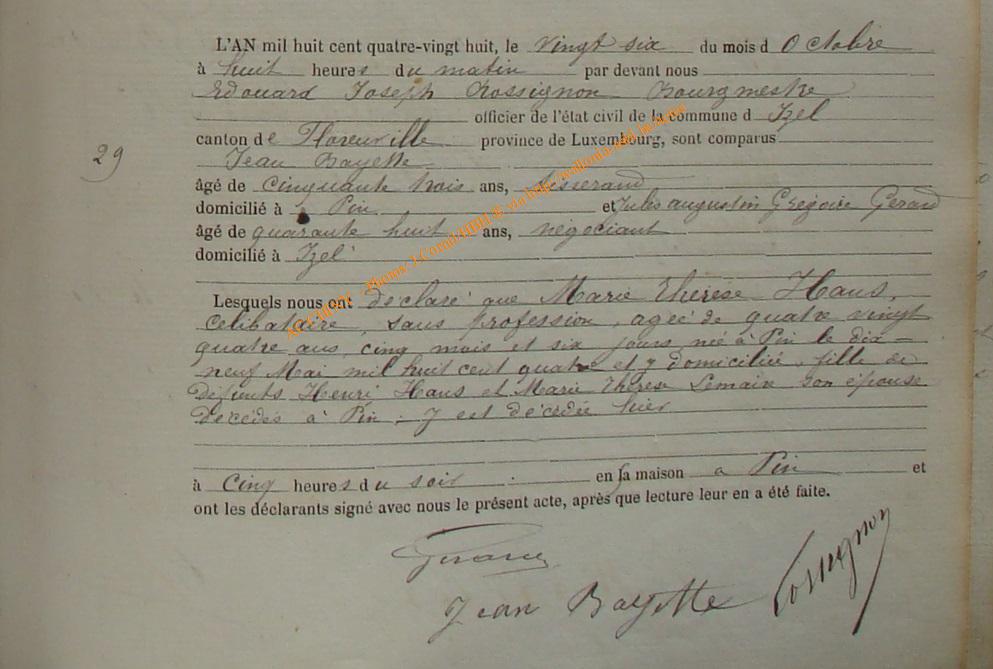 L'AN mil huit cent quatre-vingt huit, le vingt six du mois d Octobre
à huit heures du matin par devant nous
Edouard Joseph Rossignon Bourgmestre
officier de l'état civil de la commune d Izel
canton de Florenville province de Luxembourg, sont comparus
29
Jean Bayette
âgé de cinquante trois ans, tisserand
domicilié à Pin et Jules augustin Grégoire Gerard
âgé de quarante huit ans, négociant
domicilié à Izel
Lesquels nous ont déclaré que Marie Thérèse Haus,
célibataire, sans profession, agée de quatre vingt
quatre ans, cinq mois et six jours née à Pin le dix-
neuf Mai mil huit cent quatre et y domiciliée, fille de
défunts Henri Haus et Marie Thérèse Lemaire son épouse
décédés à Pin. Y est décédée hier
à cinq heures du soir en sa maison a Pin et
ont les déclarants signé avec nous le présent acte, après que lecture leur en a été faite.
Gerard
Jean Bayette Rossignon